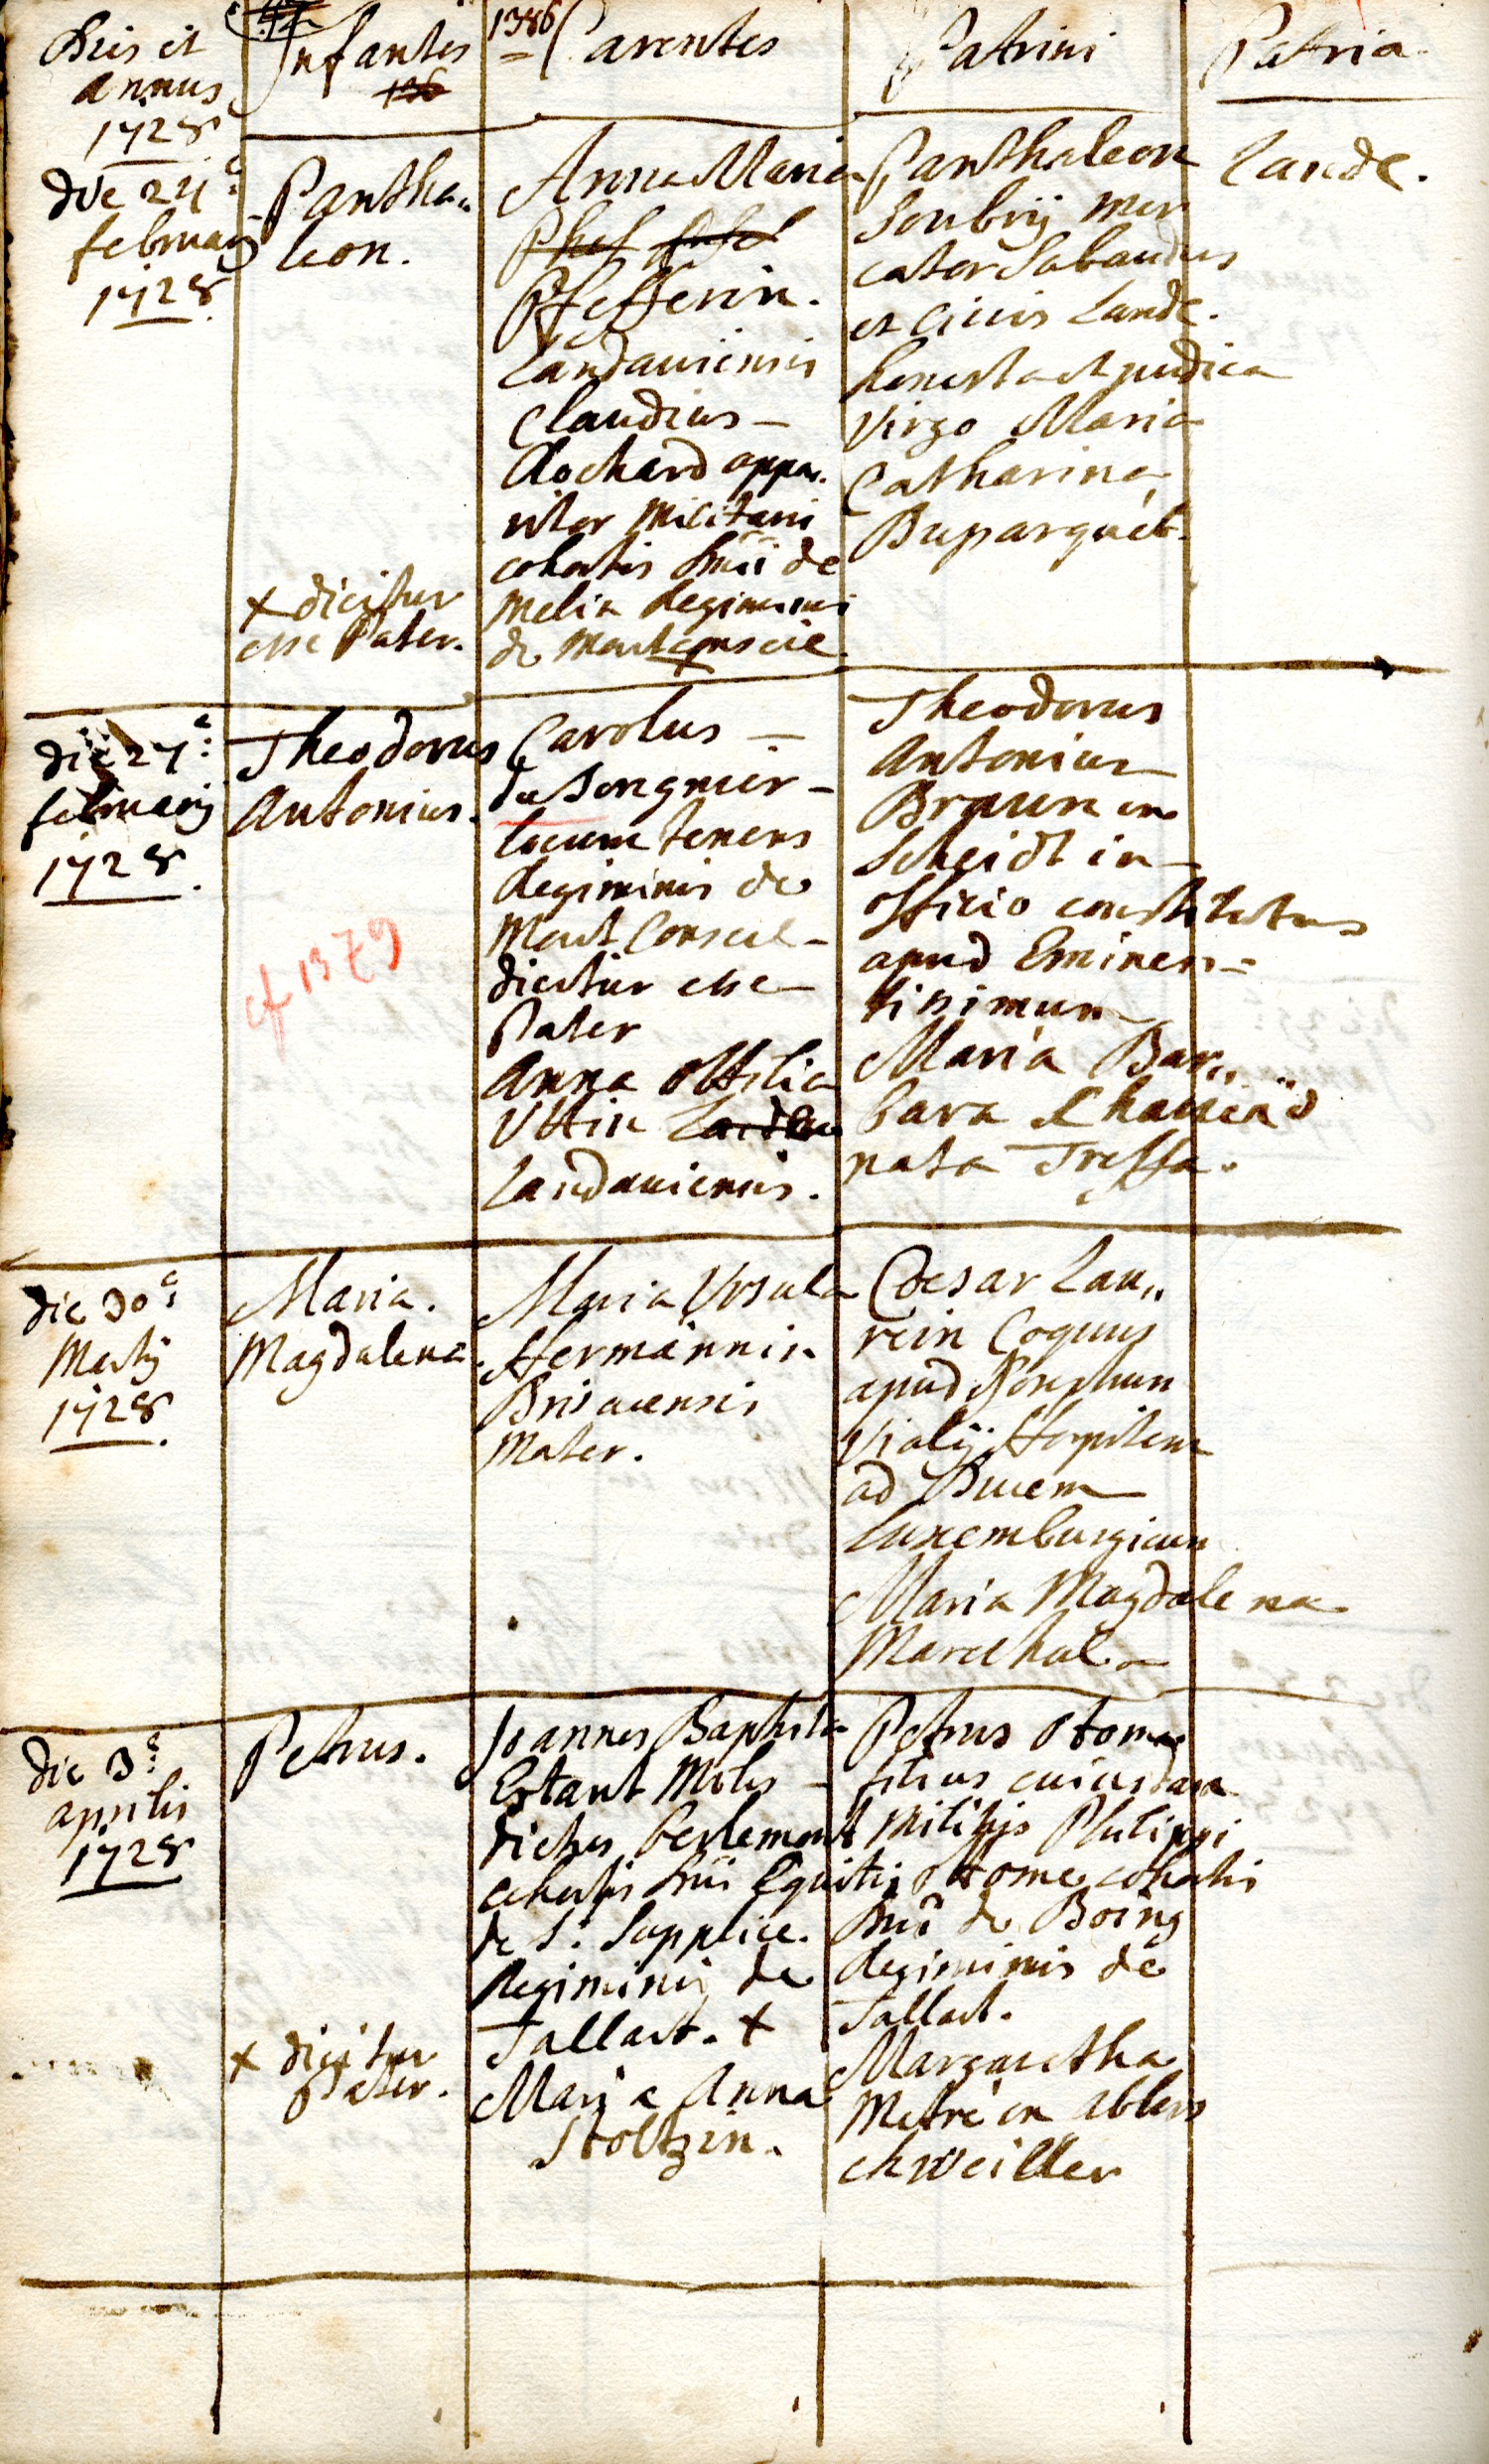 Dies et
annus
1728
Infantes
1386
Parentes
Patrini
Patria.
die 24ª
february
1728.
Pantha„
leon.
x dicitur
esse Pater.
Anna Maria
Pfefferin.
Landaviensis
Claudius –
Rochard appa„
ritor Militari
cohortis Dñii de
Melin Regiminis
de Montconseil x
Panthaleon
Soubrij mer
cator Sabaudus
et Civis Landc.
honesta et pudica
virgo Maria
Catharina
Buparquet.
Lande.
die 27ª
februarij
1728.
Theodorus
Antonius.
cf 1379
Carolus –
du Songnier –
locum tenens
Regiminis de
Mont Conseil –
dicitur esse
Pater
Anna Ottilia
Uttin
Landaviensis.
Theodorus
Antonius
Braun in
Scheidt in
officio constitutus
apud Eminen=
tissimum
Maria Bar„
bara
nata Treffa.
die 30ª
Martij
1728.
Maria.
Magdalena.
Maria Ursula
Hermännin
Brisacensis
Mater.
Caesar Lau„
rein Coquus
apud Josephum
Vialij Hospitem
ad Ducem
Luxemburgicum
Maria Magdalena
Marechal
die 3ª
aprilis
1728
Petrus.
x dicitur
Pater.
Joannes Baptista
Estant Miles –
dictus berlemont
cohortis Dñii Equitis
de St. Supplice.
Regiminis de
Tallart. x
Maria Anna
Stoltzin.
Petrus Otome
filius cuiusdam
Militis Philippi
Ottome cohortis
Dñi de Boing
Regiminis de
Tallart.
Margaretha
Metre in abbers
chweiller